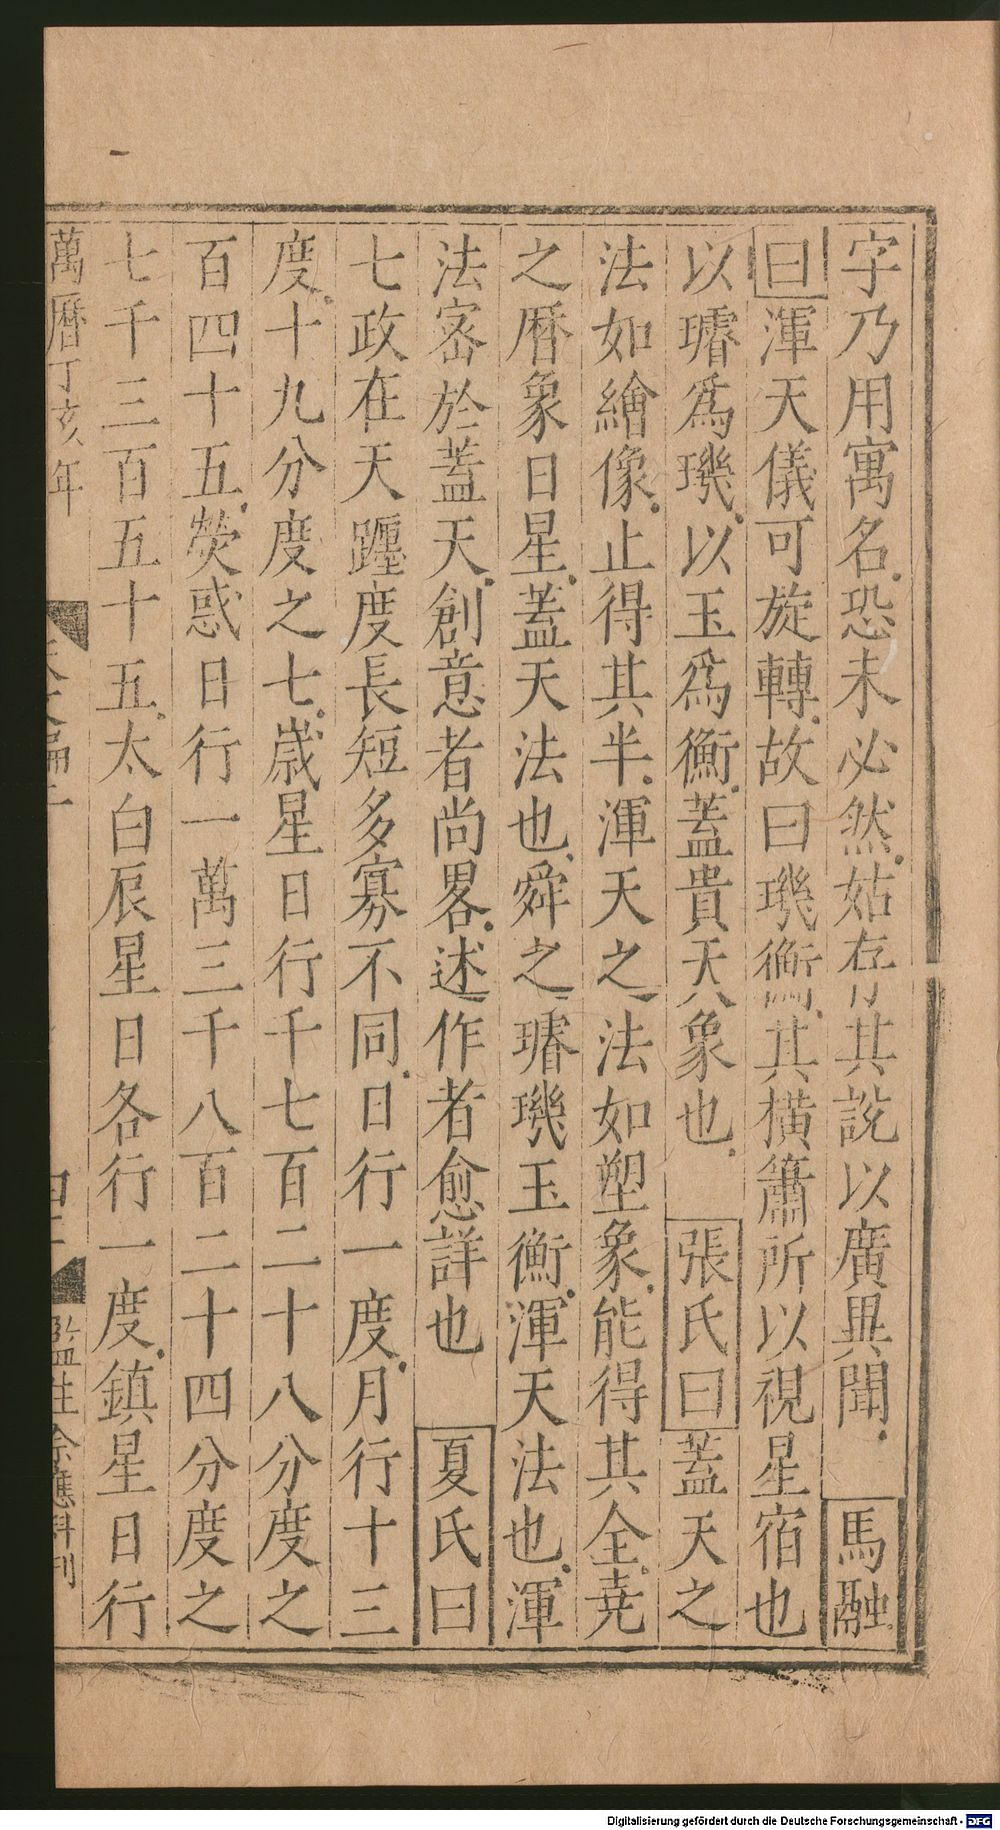 字乃用寓名恐未必然姑存其說以廣異聞馬融
曰渾天儀可旋轉故曰璣衡其橫簫所以視星宿也
以璿爲璣以玉爲衡蓋貴天象也張氏曰蓋天之
法如繪像止得其半渾天之法如塑象能得其全尭
之暦象日星蓋天法也舜之璿璣玉衡渾天法也渾
法宻於蓋天創意者尚畧述作者愈詳也夏氏曰
七政在天躔度長短多寡不同日行一度月行十三
度十九分度之七歲星日行千七百二十八分度之
百四十五熒惑日行一萬三千八百二十四分度之
七千三百五十五太白辰星日各行一度鎮星日行
萬曆丁亥年
監生余應科刊
Digitalisierung gefördert durch die Deutsche Forschungsgemeinschaft - DFG